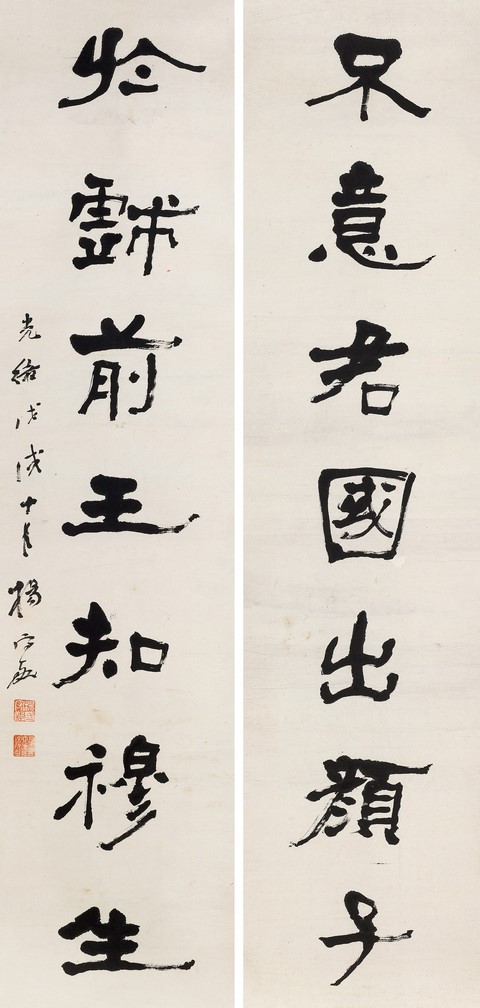 不意君國出顏子
於戲前王知穆生
光緒戊戌十月楊守敬